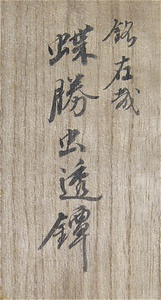 銘左哉
蝶勝虫透鐔